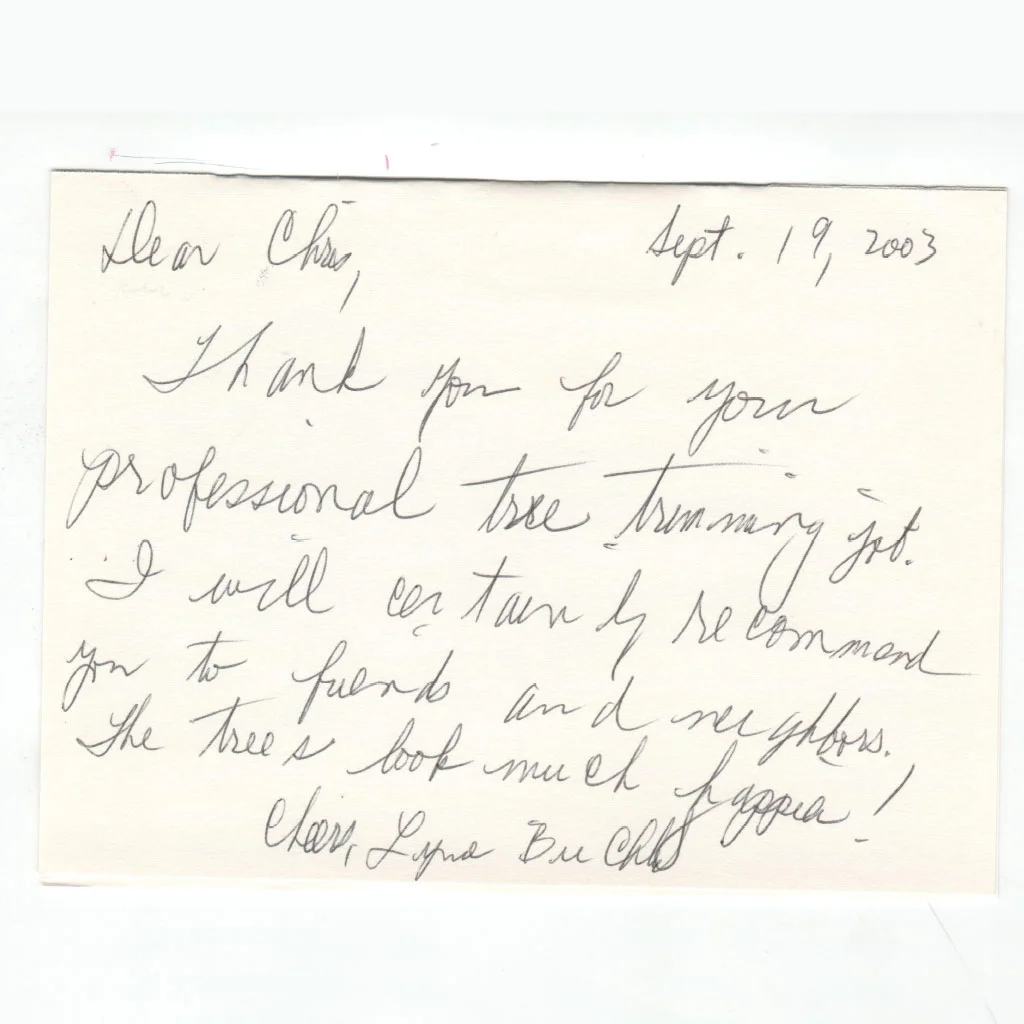 Dear Chris, Sept. 19, 2003
Thank you for your
professional tree trimming job.
I will certainly recommend
you to friends and neighbors.
The trees look much happier!
Cheers,